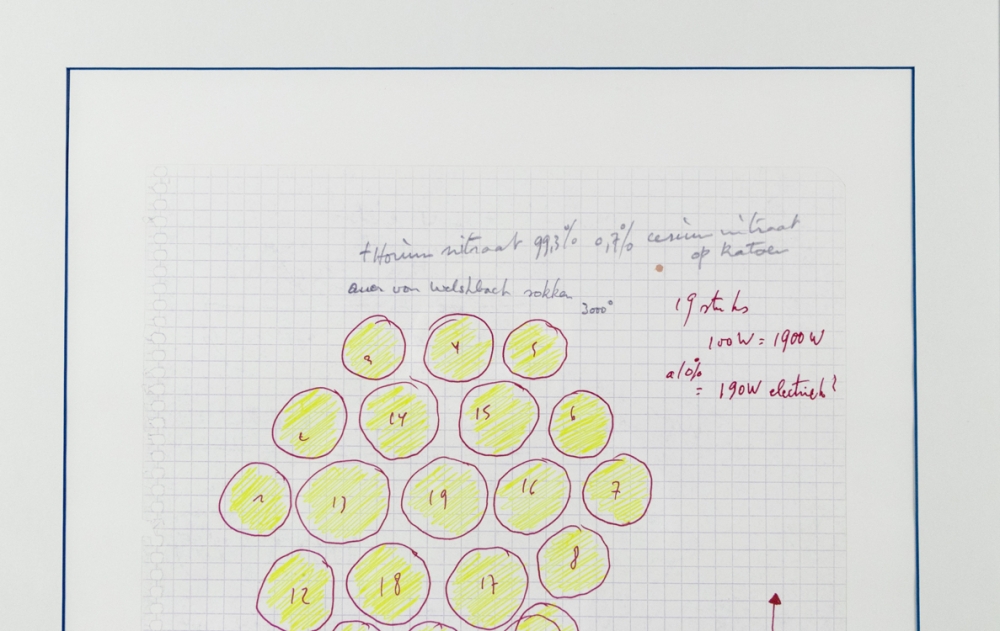 thorium nitraat 99,3% 0,7% cesium nitraat
op katoen
auer von Welshbach sokken
3000°
19 stuks
100W = 1900W
a 10%
= 190W electrisch?
3 4 5
2 14 15 6
1 13 19 16 7
12 18 17 8